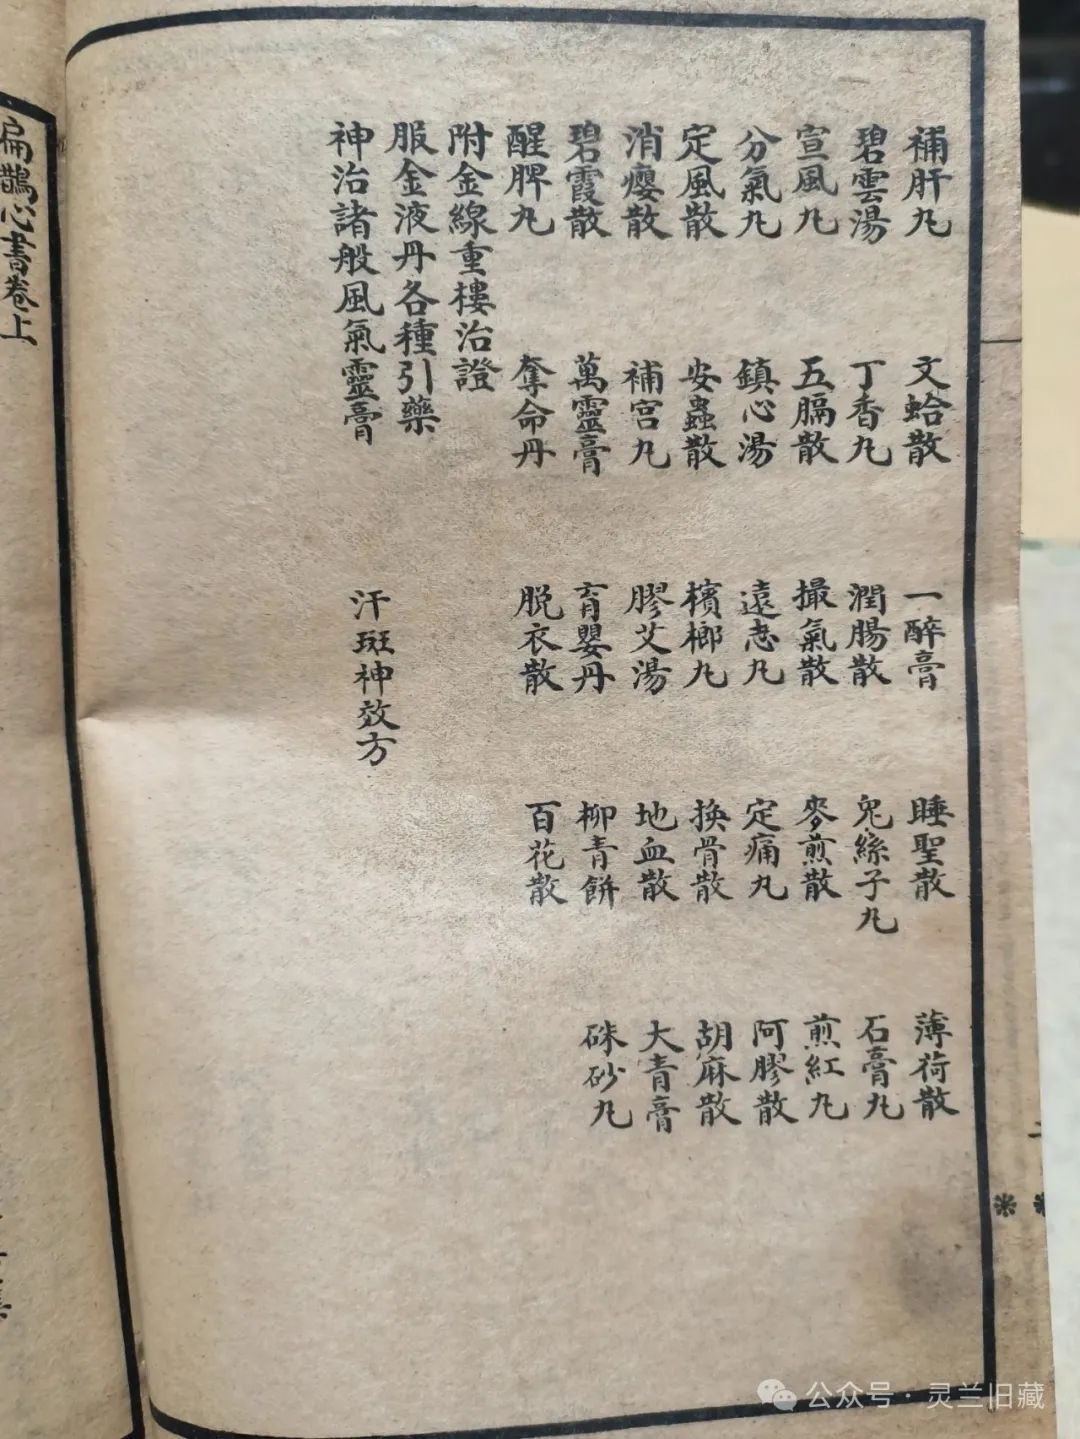 補肝丸 文蛤散 一醉膏 睡聖散 薄荷散
碧雲湯 丁香丸 潤腸散 兔絲子丸 石膏丸
宣風丸 五膈散 撮氣散 麥煎散 煎紅丸
分氣丸 鎮心湯 遠志丸 定痛丸 阿膠散
定風散 安蟲散 檳榔丸 換骨散 胡麻散
消癭散 補宮丸 膠艾湯 地血散 大青膏
碧霞散 萬靈膏 育嬰丹 柳青餅 硃砂丸
醒脾丸 奪命丹 脫衣散 百花散
附金線重樓治證
服金液丹各種引藥
神治諸般風氣靈膏 汗斑神效方
扁鵲心書卷上
公众号·灵兰旧藏